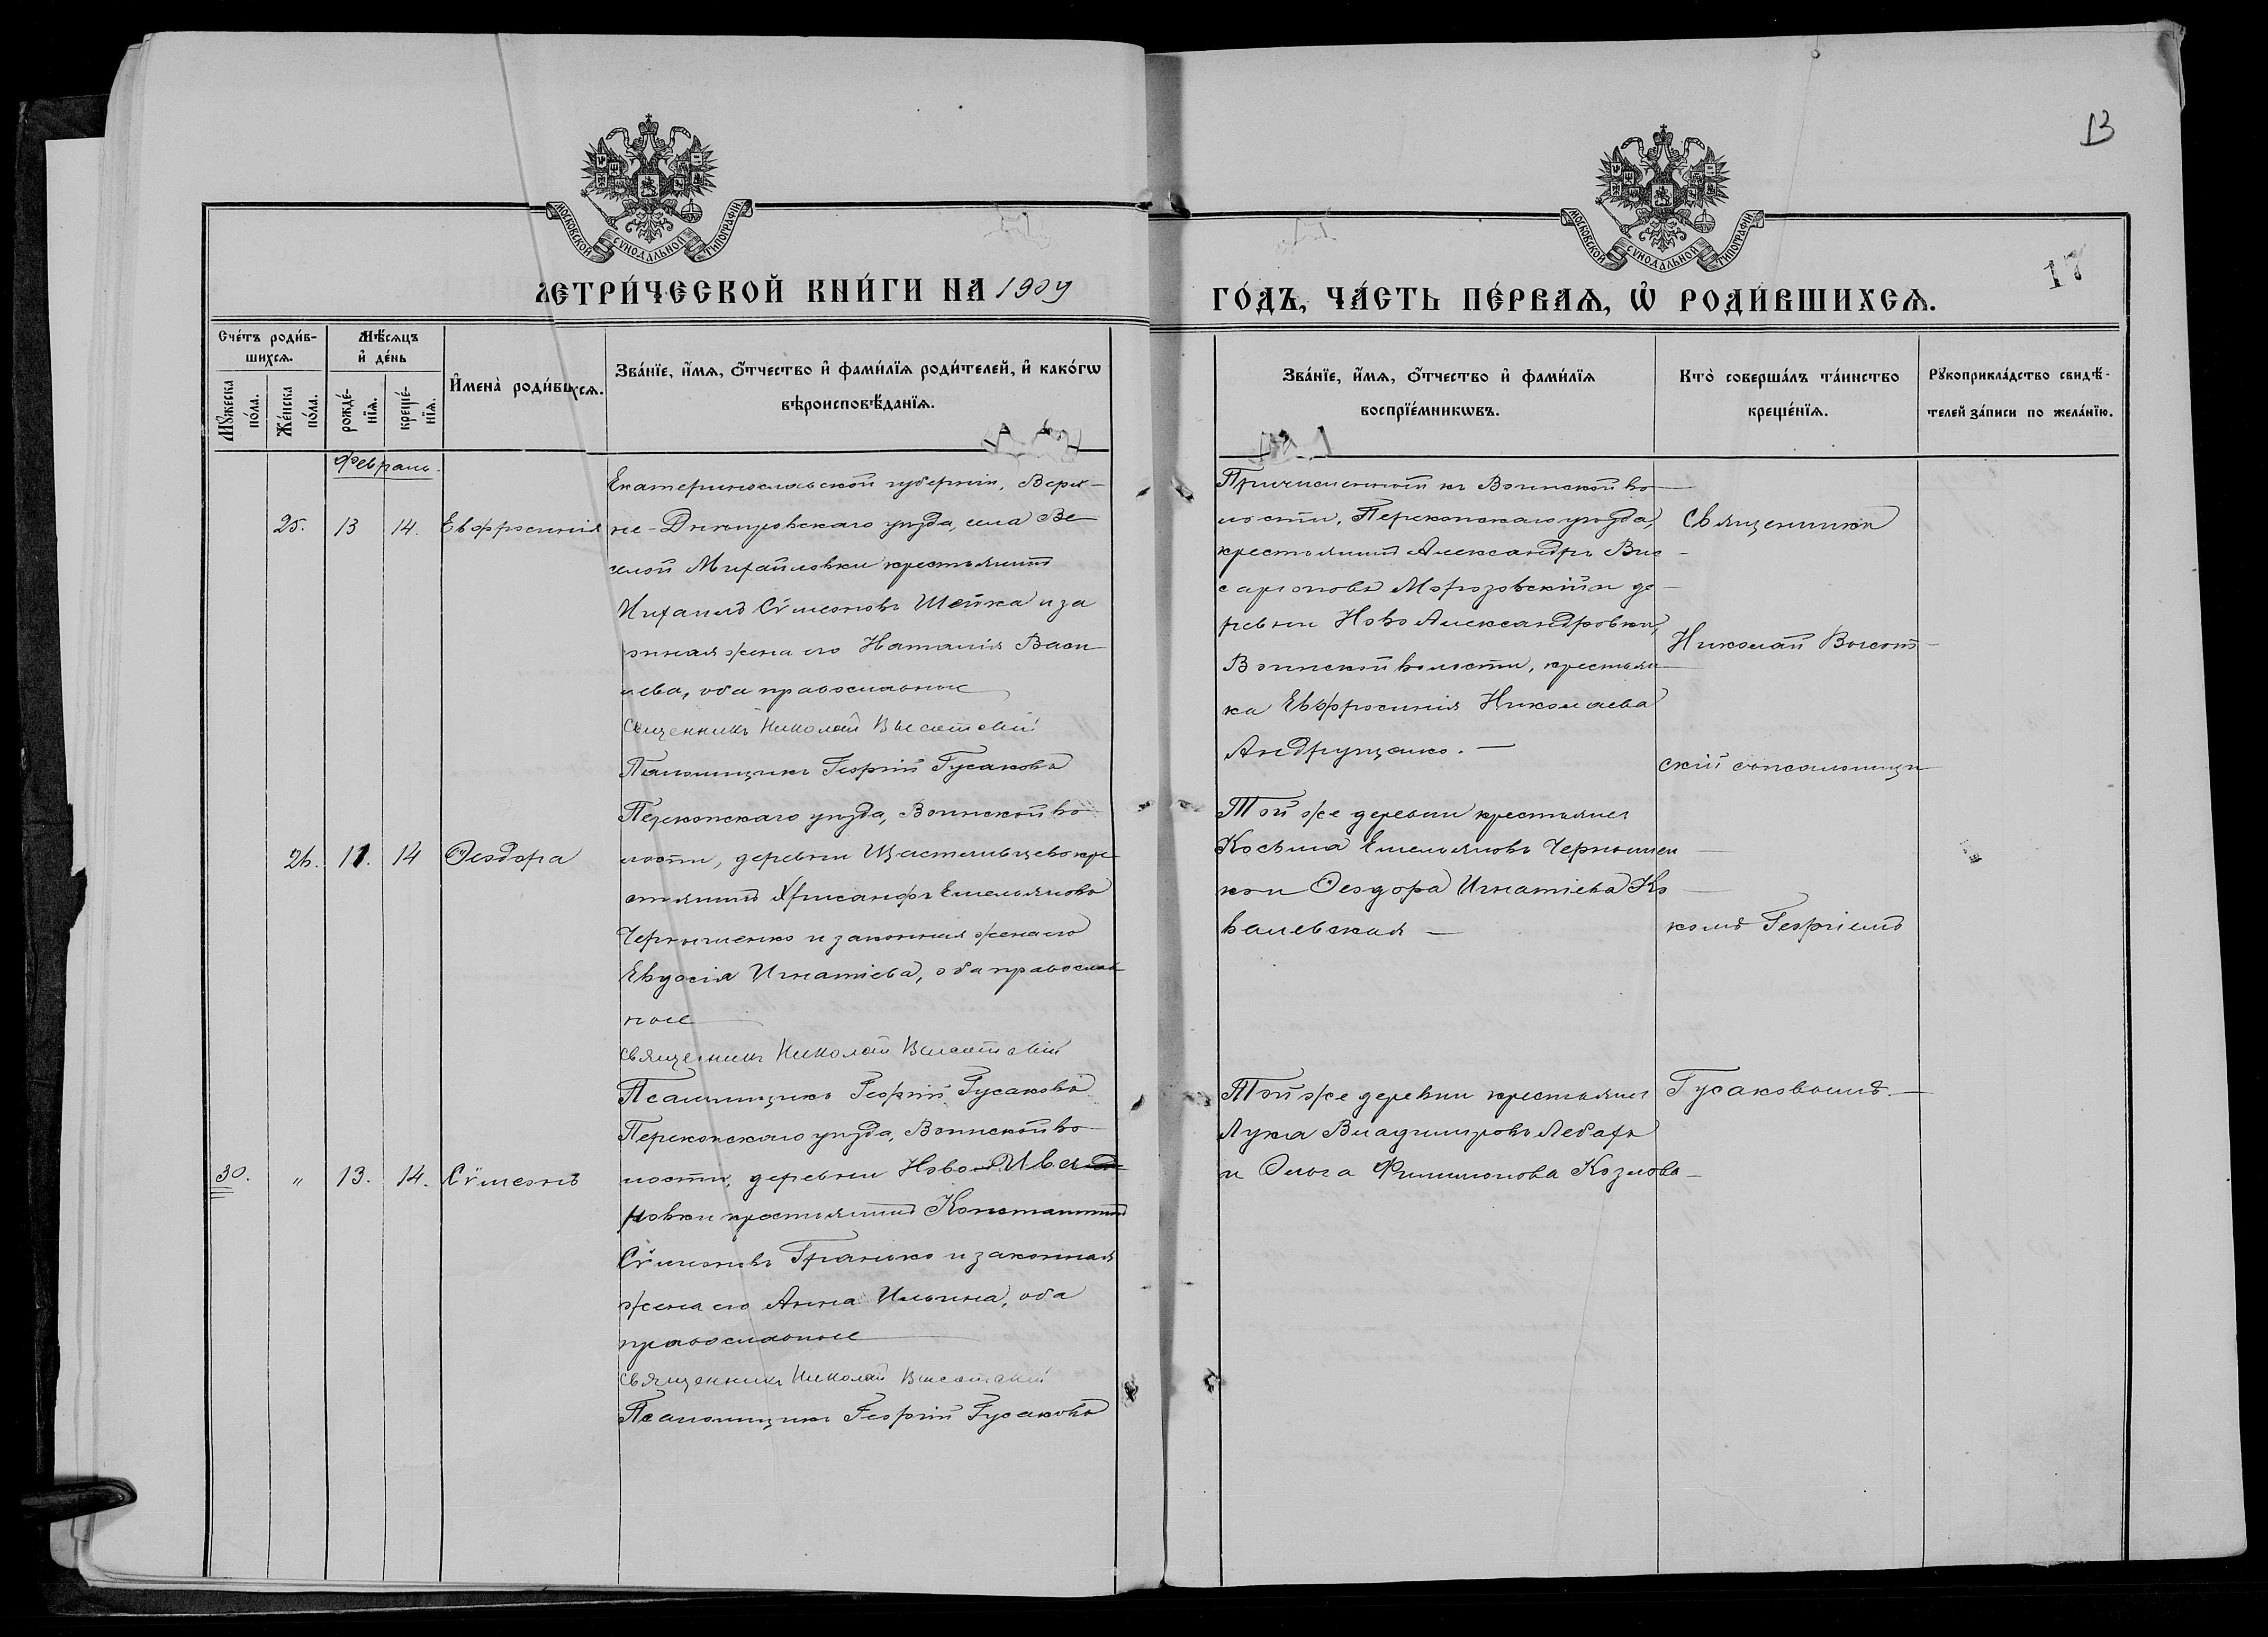 13
МОСКОВСКОЙ СУНОДАЛЬНОЙ ТИПОГРАФІИ
МОСКОВСКОЙ СУНОДАЛЬНОЙ ТИПОГРАФІИ
17
МЕТРИ́ЧЕСКОЙ КНИ́ГИ НА 1909
ГО́ДЪ, ЧА́СТЬ ПЕ́РВАѦ, Ѡ҆ РОДИ́ВШИХСѦ.
Сче́тъ роди́в-
шихсѧ.
Мѣ́сѧцъ
и҆ де́нь
Мꙋ́жеска
по́ла.
Же́нска
по́ла.
рожде́-
нїѧ.
креще́-
нїѧ.
И҆мена̀ роди́вшихсѧ.
Зва́нїе, и҆́мѧ, ѻ҆́тчество и҆ фами́лїѧ роди́телей, и҆ како́гѡ
вѣроисповѣ́данїѧ.
Зва́нїе, и҆́мѧ, ѻ҆́тчество и҆ фами́лїѧ
воспрїе́мникѡвъ.
Кто̀ соверша́лъ та́инство
креще́нїѧ.
Рꙋкоприкла́дство свидѣ́-
телей за́писи по жела́нїю.
Февраль.
25. 13 14. Евфросинія
Екатеринославской губерніи, Верх-
не-Днѣпровскаго уѣзда, села Ве
селой Михайловки крестьянинъ
Михаилъ Сѵмеоновъ Шейка и за
конная жена его Наталія Васи
льева, оба православные
Священникъ Николай Высотскій
Псаломщикъ Георгій Гусаковъ
Причисленный къ Воинской во
лости, Перекопскаго уѣзда,
крестьянинъ Александръ Вис
саріоновъ Морозовскій и де
ревни Ново Александровки,
Воинской волости, крестьян
ка Евфросинія Николаева
Андрущенко. —
Священникъ
Николай Высот-
скій съ псаломщи
комъ Георгіемъ
Гусаковымъ. —
26. 11. 14 Ѳеодора
Перекопскаго уѣзда, Воинской во
лости, деревни Щастливцево кре
стьянинъ Хрисанфъ Емельяновъ
Чернышенко и законная жена его
Евдосія Игнатіева, оба православ
ные
Священникъ Николай Высотскій
Псаломщикъ Георгій Гусаковъ
Той же деревни крестьяне
Косьма Емельяновъ Чернышен
ко и Ѳеодора Игнатіева Ко
валевская —
30. " 13. 14. Сѵмеонъ
Перекопскаго уѣзда, Воинской во
лости, деревни Ново-Ива
новки крестьянинъ Константинъ
Сѵмеоновъ Гранько и законная
жена его Анна Ильина, оба
православные
Священникъ Николай Высотскій
Псаломщикъ Георгій Гусаковъ
Той же деревни крестьяне
Лука Владимировъ Лебедь
и Ольга Филимонова Козлова —